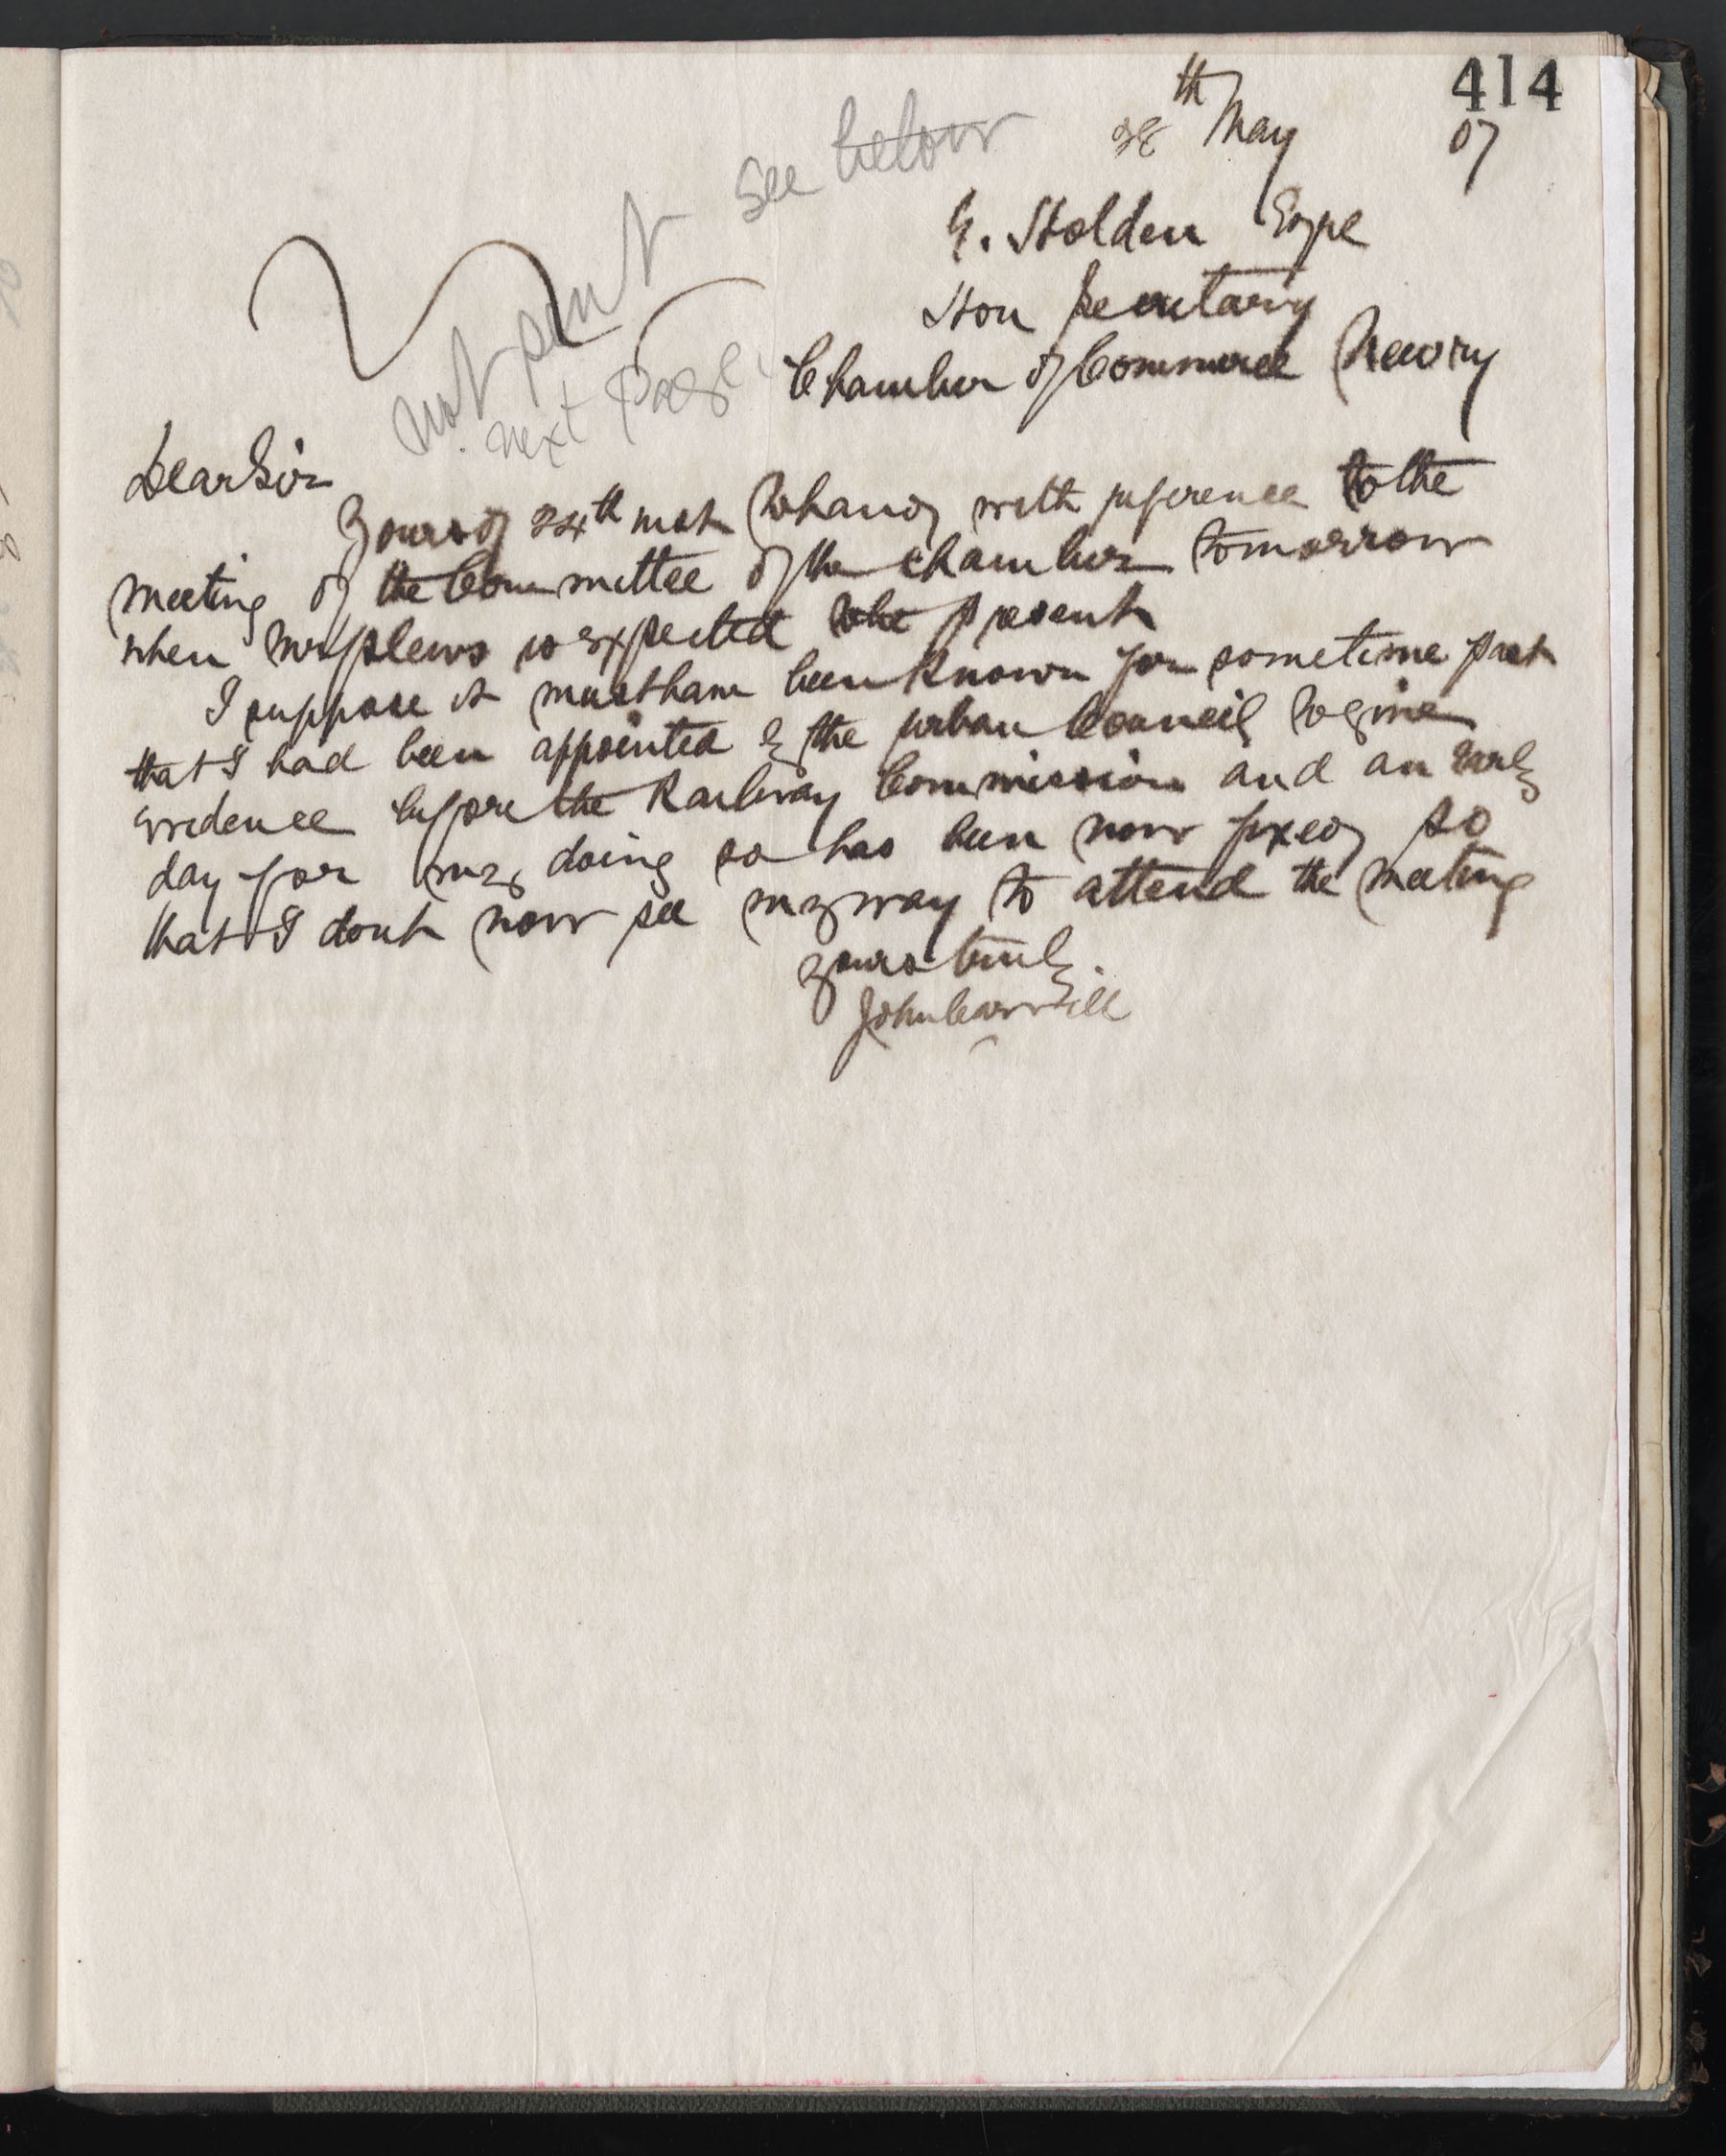 414
28th May 07
See below
G. Holden Esqre
Hon Secretary
Chamber of Commerce Newry
not sent
next page
Dear Sir
Yours of 24th inst to hand with reference to the
meeting of the Committee of the Chamber tomorrow
when Mr Plews is expected to be present
I suppose it must have been known for sometime past
that I had been appointed by the Urban Council to give
evidence before the Railway Commission and an early
day for my doing so has been now fixed so
that I dont now see my way to attend the meeting
yours truly
John Carvill